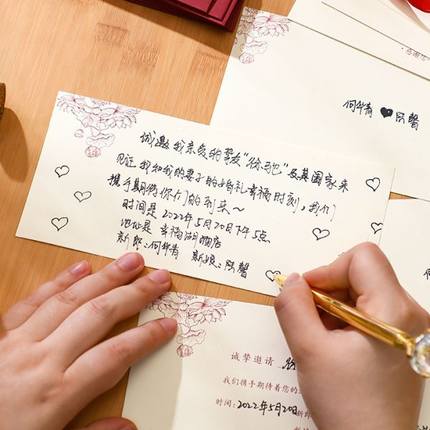 何华青 ♥ 陈馨
诚邀我亲爱的挚友“徐驰”及其国家来
见证我和我的妻子的婚礼幸福时刻，我们
携手期待你们的到来~
时间是2022年5月20日下午5点
地址是 幸福湖酒店
新郎：何华青 新娘：陈馨
诚挚邀请
我们携手期待着您的
时间：2022年5月20日